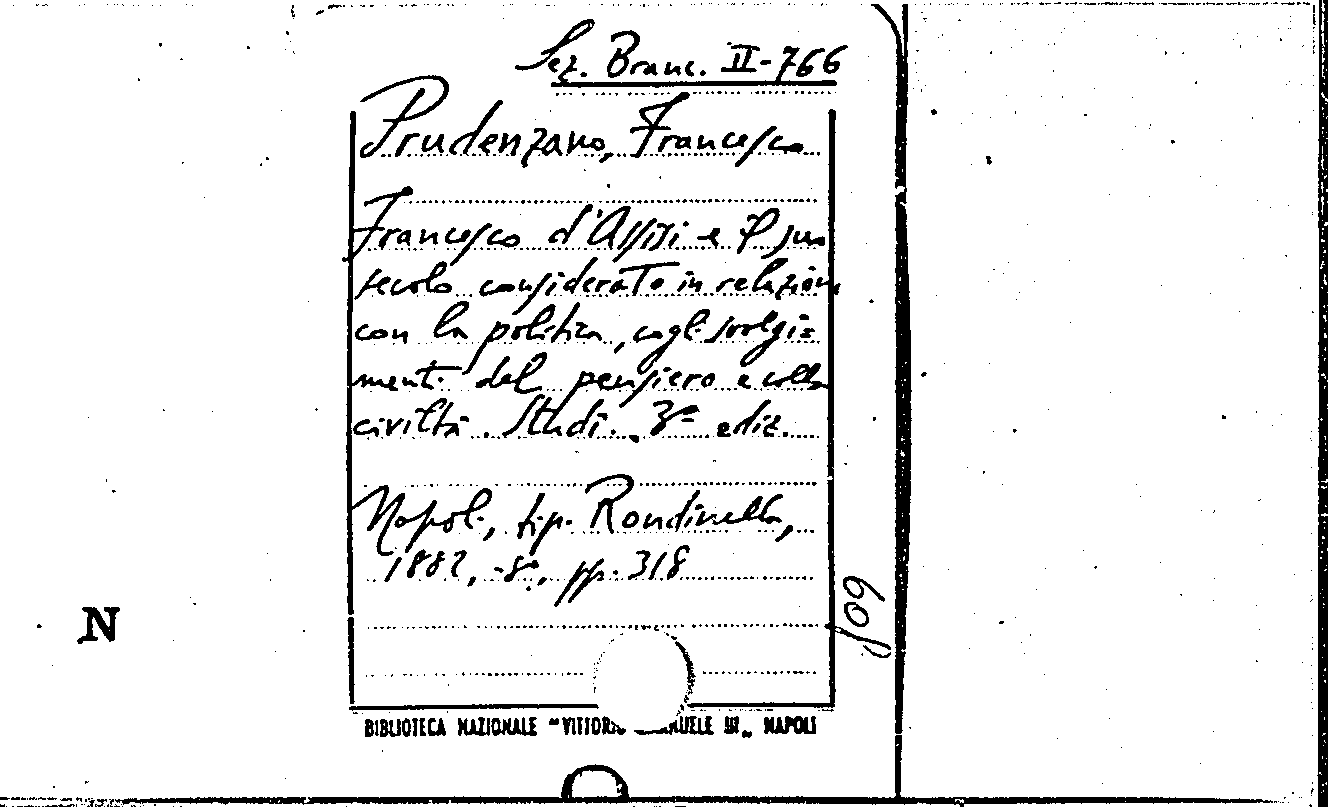 Sez. Branc. II-766
Prudenzano, Francesco
Francesco d'Assisi e il suo
secolo considerato in relazione
con la politica, cogli svolgi=
menti del pensiero e colla
civiltà. Studi. 3ª ediz.
Napoli, tip. Rondinella,
1882, -8°, pp. 318
N
BIBLIOTECA NAZIONALE "VITTORIO EMANUELE III„ NAPOLI